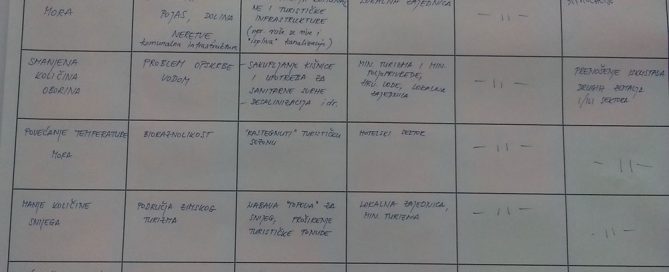 MORA
POJAS, DOLINA
NERETVE,
komunalna infrastruktura
NE I TURISTIČKE
INFRASTRUKTURE
LOKALNA ZAJEDNICA
- 11 -
SMANJENA
KOLIČINA
OBORINA
PROBLEM OPSKRBE
VODOM
- SAKUPLJANJE KIŠNICE
I UPOTREBA ZA
SANITARNE SVRHE
- DESALINIZACIJA i dr.
MIN. TURIZMA I MIN.
POLJOPRIVREDE,
HRV. VODE, LOKALNA
ZAJEDNICA
- 11 -
PRENOŠENJE ISKUSTAVA
DRUGIH ZEMALJA
I/ILI SEKTORA
POVEĆANJE TEMPERATURE
MORA
BIORAZNOLIKOST
"RASTEGNUTI" TURISTIČKU
SEZONU
HOTELSKI SEKTOR
- 11 -
- 11 -
MANJE KOLIČINE
SNIJEGA
PODRUČJA ZIMSKOG
TURIZMA
NABAVA "TOPOVA" ZA
SNIJEG, PROŠIRENJE
TURISTIČKE PONUDE
LOKALNA ZAJEDNICA,
MIN. TURIZMA
- 11 -
- 11 -